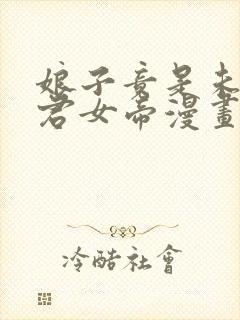 娘子竟是未
君女帝漫畫
冷酷社會